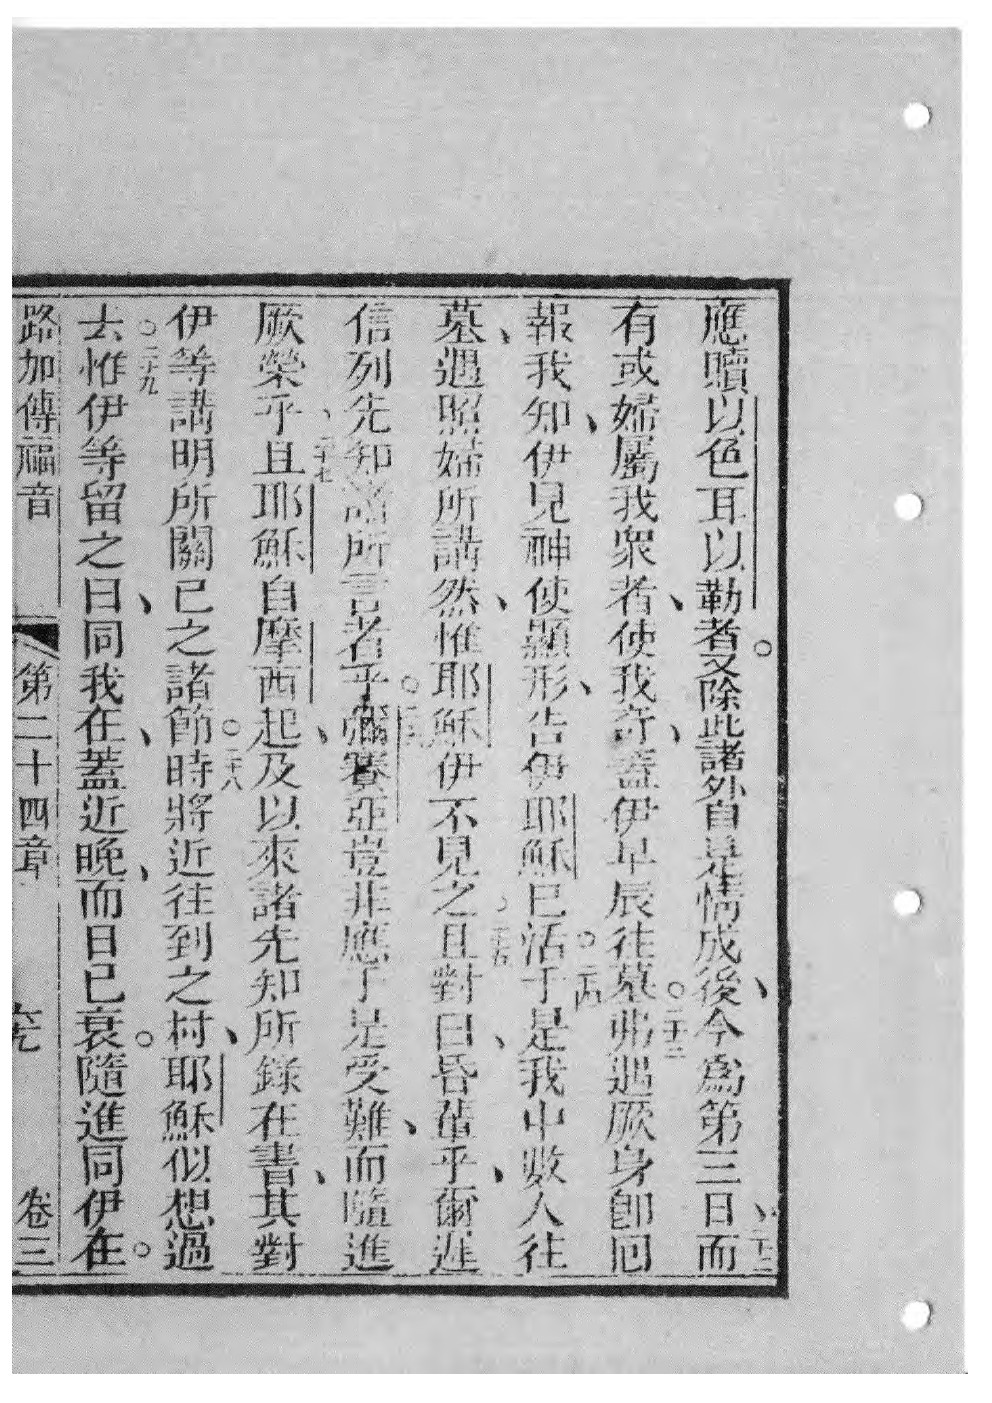 應贖以色耳以勒者。又除此諸外自是情成後、今為第三日、而
二十二
有或婦屬我衆者、使我奇、蓋伊早辰往墓。弗遇厥身卽囘
二十三
報我知、伊見神使顯形、告伊耶穌已活。于是我中數人往
二十四
墓、遇照婦所講然、惟耶穌伊不見之且對曰、昏輩乎、爾遲
二十五
信列先知諸所言者乎。彌賽亞豈非應于是受難、而隨進
厥榮乎、且耶穌自摩西起、及以來諸先知所錄在書、其對
二十七
伊等講明所關己之諸節。時將近往到之村、耶穌似想過
二十八
去。惟伊等留之曰、同我在、蓋近晚、而日已衰。隨進同伊在。
二十九
路加傳福音 第二十四章 卷三